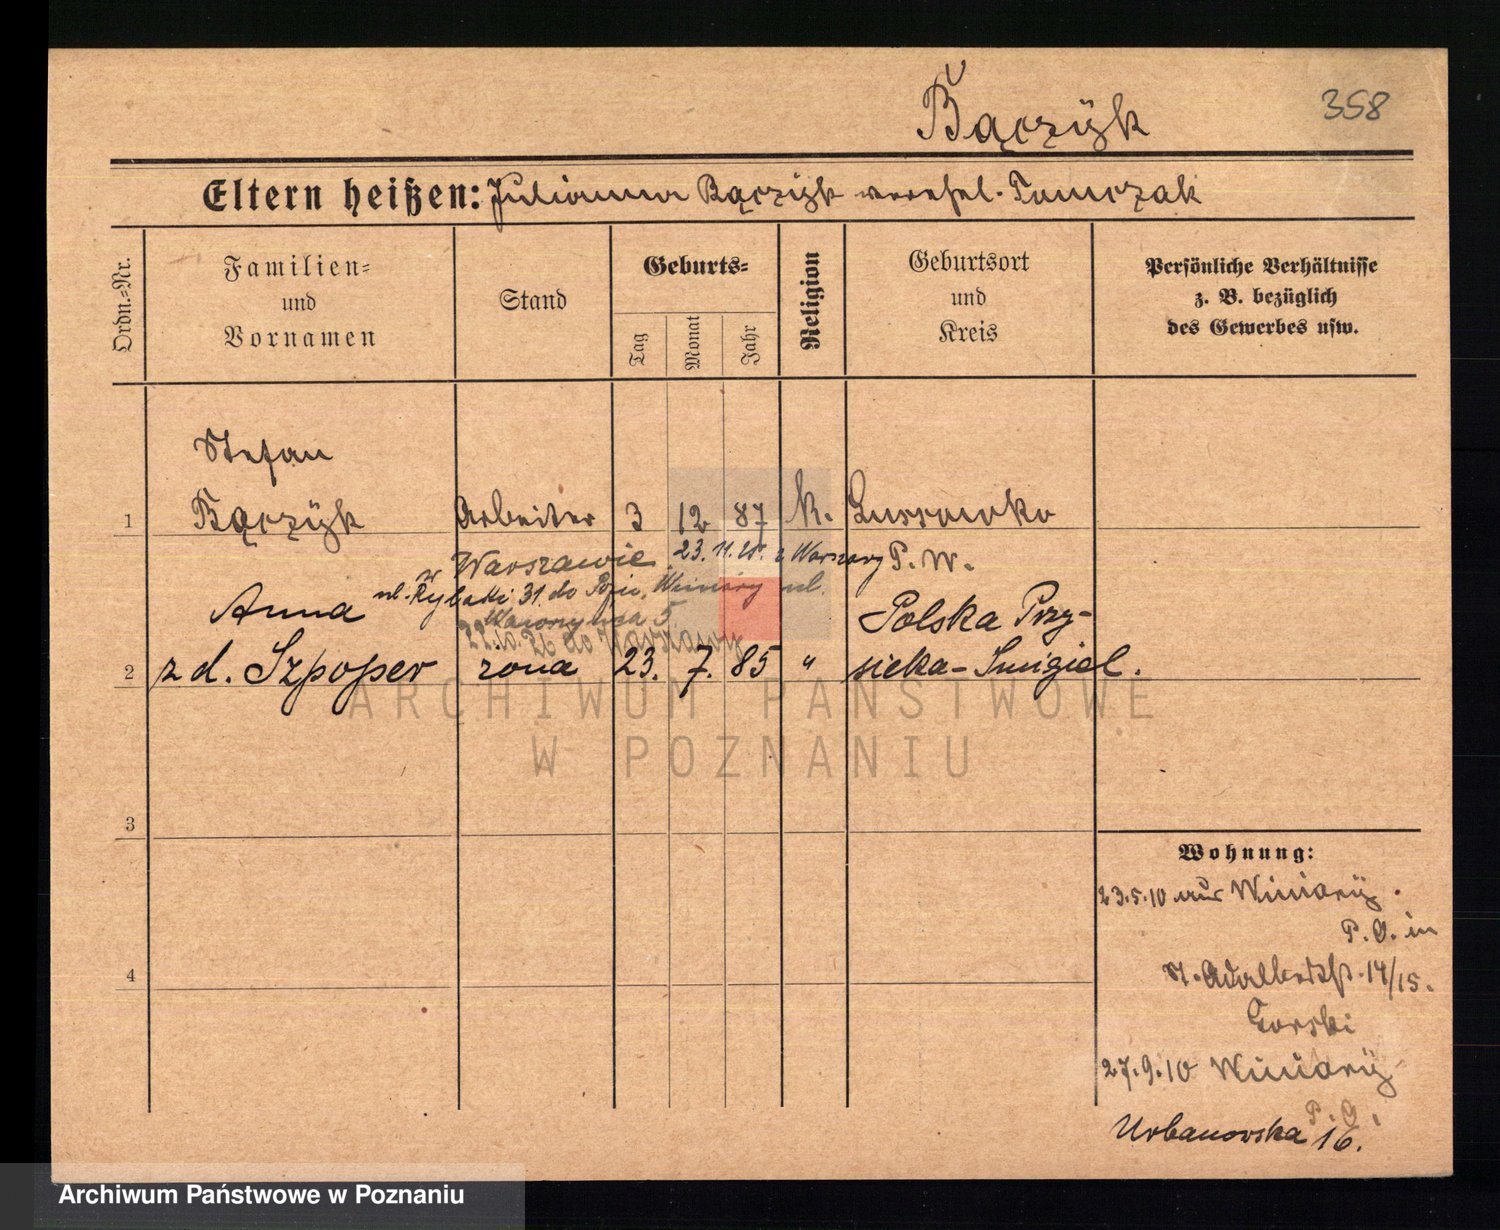 358
Bączyk
Eltern heißen: Julianna Bączyk verehel. Tomczak
Ordn.=Nr.
Familien=
und
Vornamen
Stand
Geburts=
Tag
Monat
Jahr
Religion
Geburtsort
und
Kreis
Persönliche Verhältnisse
z. B. bezüglich
des Gewerbes usw.
Stefan
1 Bączyk Arbeiter 3 12 87 k. Lussowko
P. W.
w Warszawie 23. 11. z Warszawy
ul. Rybaki 31. do Winiary ul.
5.
22.10.26 do Warszawy
Anna
Polska Przy-
2 z d. Szpoper żona 23. 7. 85 " sieka - Śmigiel.
3
4
Wohnung:
23.5.10 aus Winiary.
P. O. in
St. Adalbertstr. 14/15.
Gorski
27.9.10 Winiary
P. O.
Urbanowska 16.
ARCHIWUM PAŃSTWOWE
W POZNANIU
Archiwum Państwowe w Poznaniu